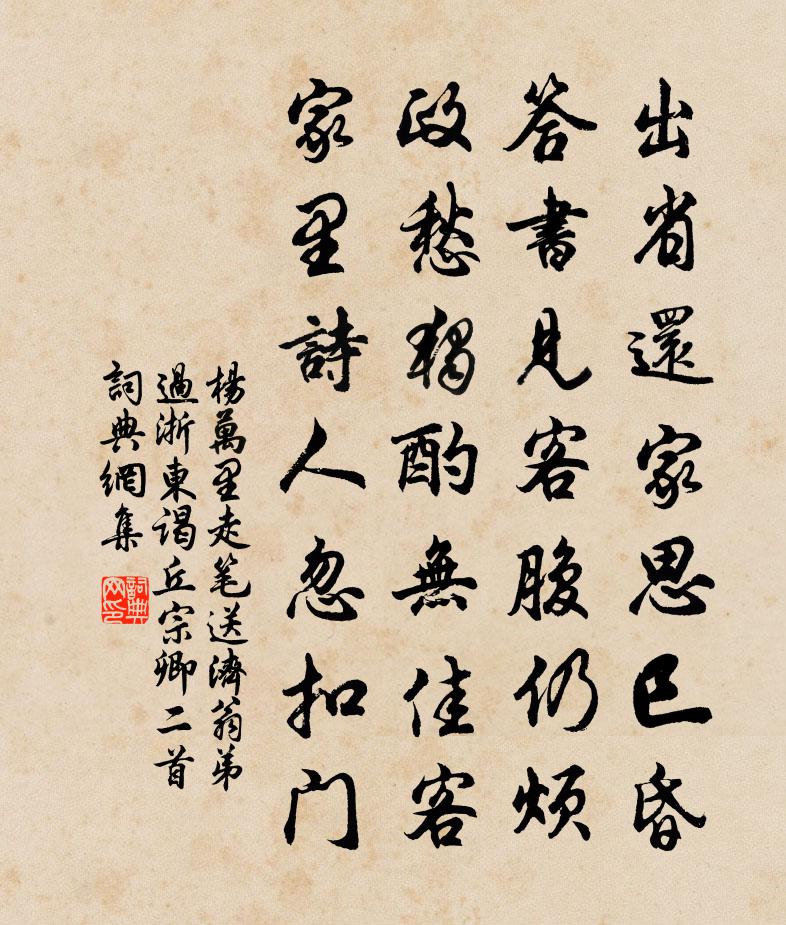 出省還家思已昏
答書見客腹仍煩
政愁獨酌無佳客
家里詩人忽扣门
楊萬里走笔送濟翁弟
過浙東謁丘宗卿二首
詞典網集
詞典网印